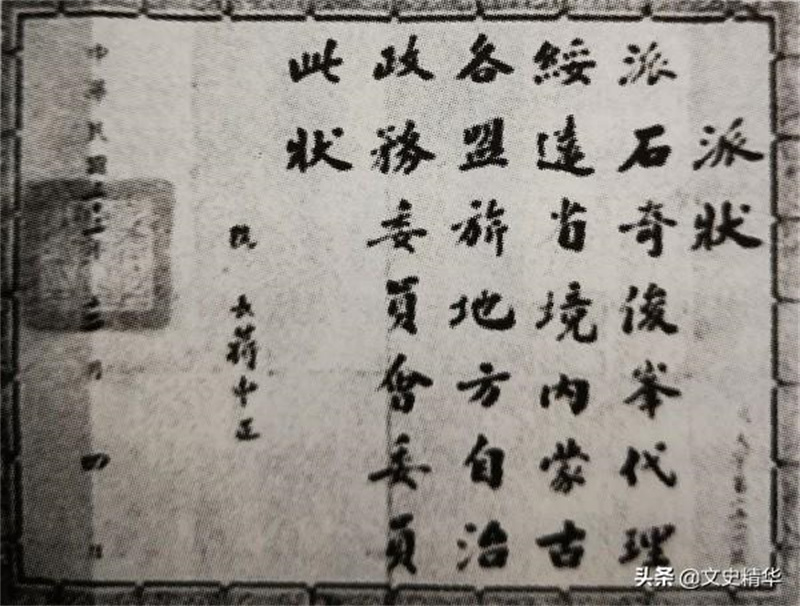 派狀
派石奇俊峯代理
綏遠省境內蒙古
各盟旂地方自治
政務委員會委員
此狀
院長蔣中正
中華民國 年 月四日
头条 @文史精华